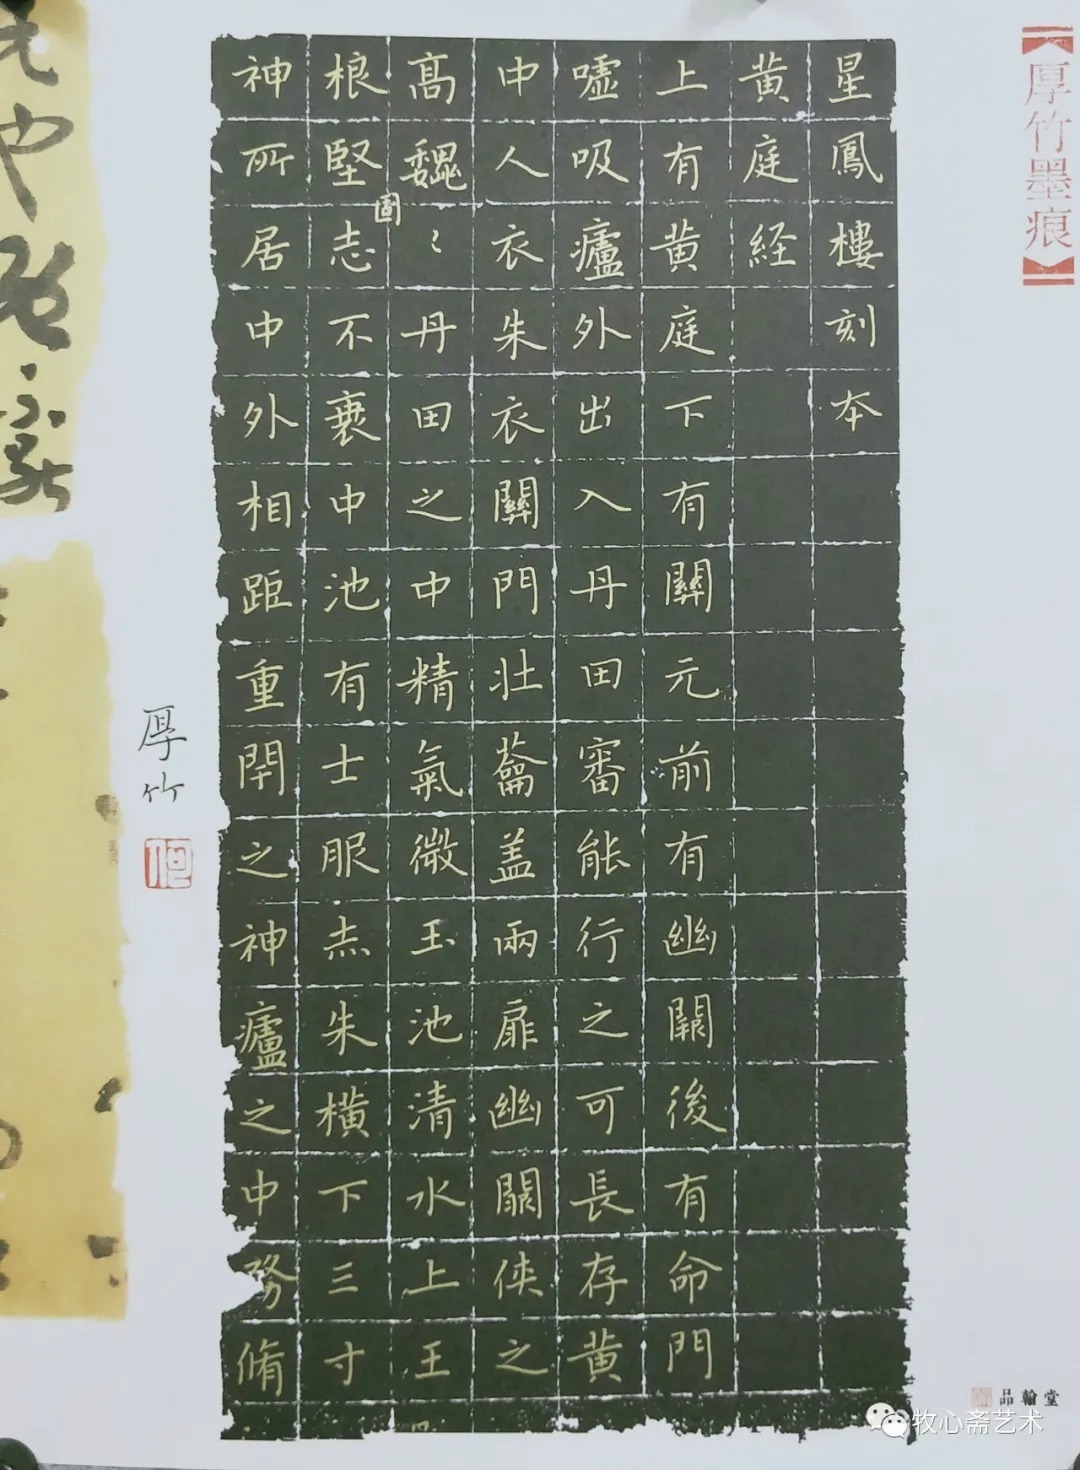 星鳳樓刻本
黄庭経
上有黄庭下有關元前有幽闕後有命門
嘘吸廬外出入丹田審能行之可長存黄
中人衣朱衣關門壮蘥盖兩扉幽關俠之
高巍〻丹田之中精氣微玉池清水上王
啚
根堅志不衰中池有士服赤朱横下三寸
神所居中外相距重閇之神廬之中務脩
厚竹
【厚竹墨痕】
品翰堂
牧心斋艺术